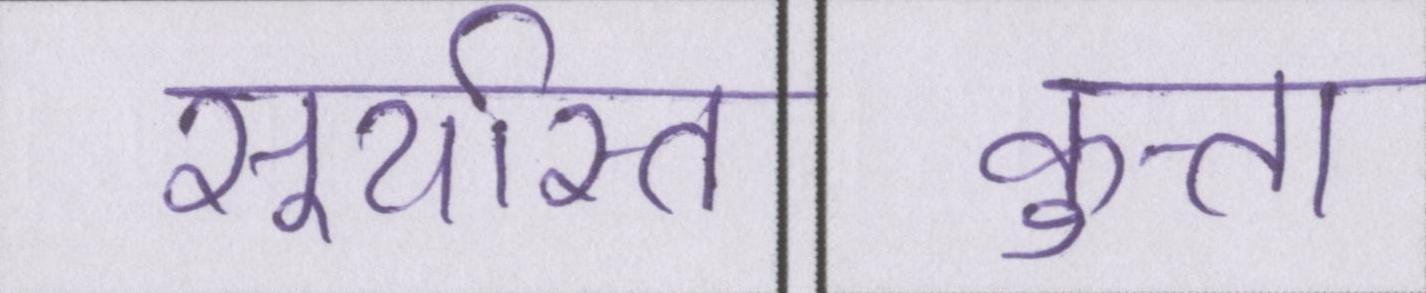 सूर्यास्त कुत्ता